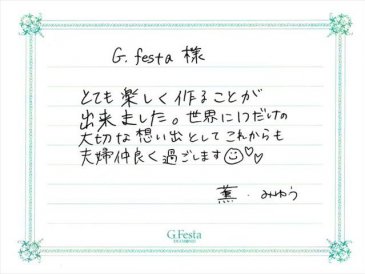 G. festa 様
とても楽しく作ることが
出来ました。世界に1つだけの
大切な想い出としてこれからも
夫婦仲良く過ごします☺♡♡
薫・みゆう
G.Festa
DIAMOND